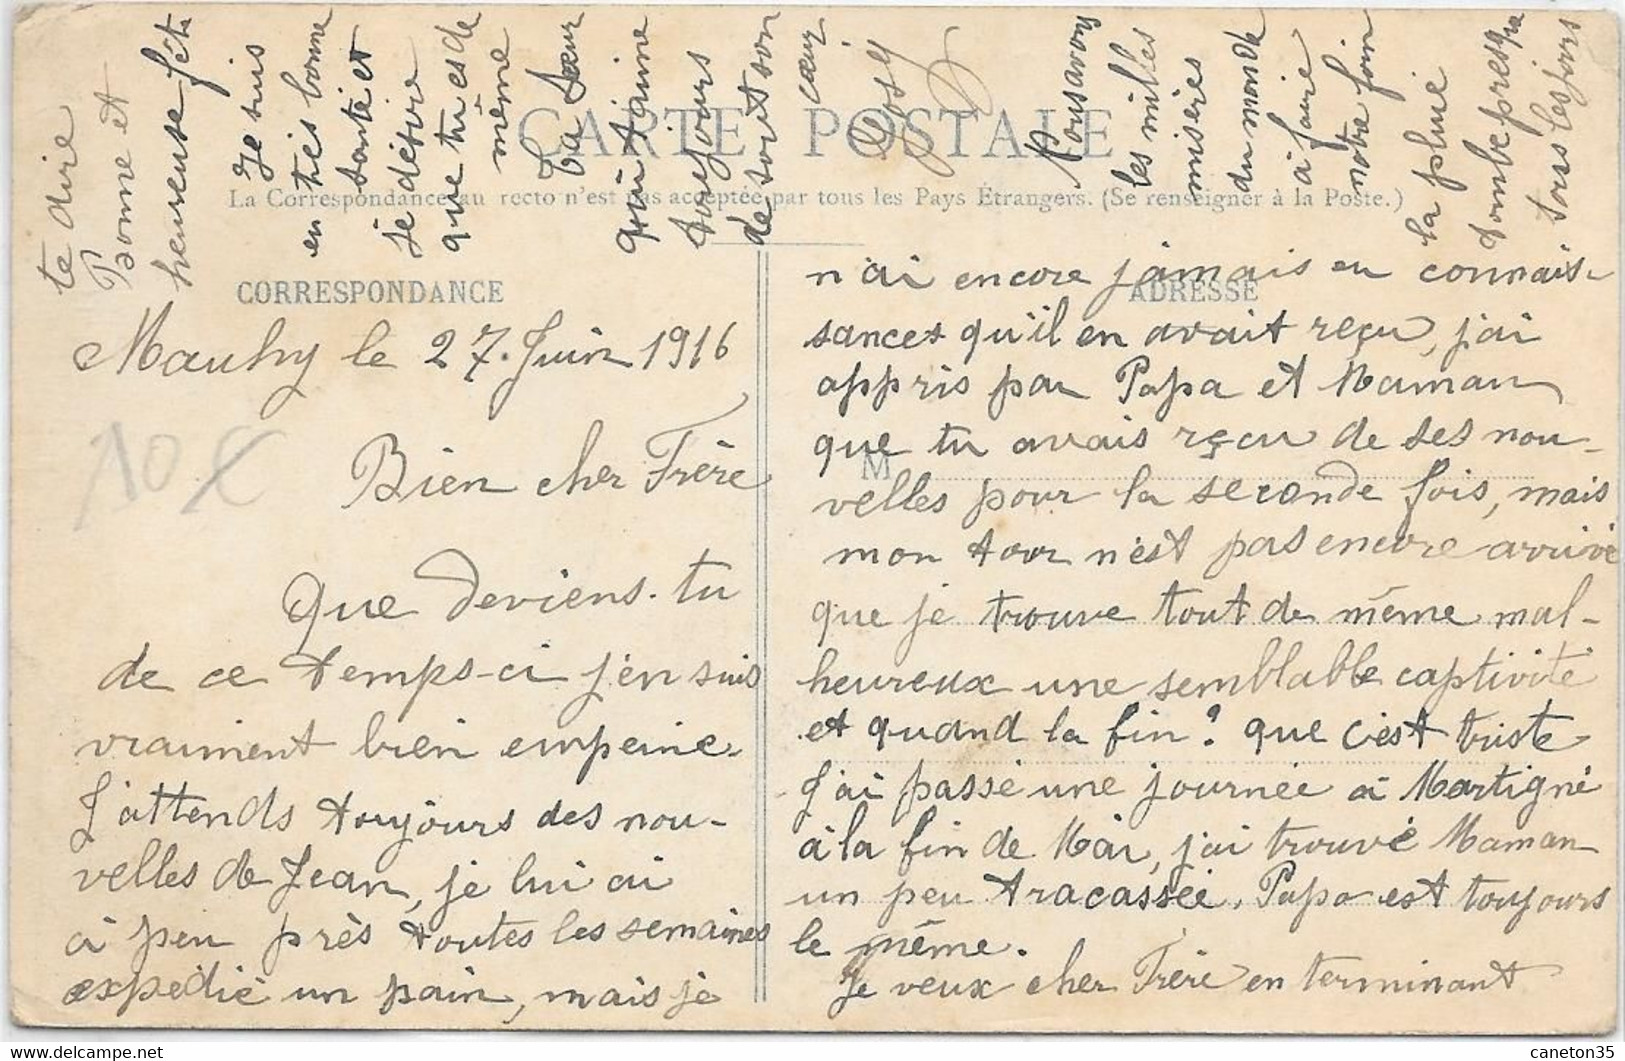 CARTE POSTALE
La Correspondance au recto n'est pas acceptée par tous les Pays Étrangers. (Se renseigner à la Poste.)
CORRESPONDANCE
ADRESSE
M
10 €
Mauhy le 27 Juin 1916
Bien cher Frère
Que deviens-tu
de ce temps-ci j'en suis
vraiment bien empeine.
J'attends toujours des nou-
velles de Jean, je lui ai
à peu près toutes les semaines
expédié un pain, mais je
n'ai encore jamais eu connais-
sances qu'il en avait reçu, j'ai
appris par Papa et Maman
que tu avais reçu de ses nou-
velles pour la seconde fois, mais
mon tour n'est pas encore arrivé
que je trouve tout de même mal-
heureux une semblable captivité
et quand la fin? que c'est triste
J'ai passé une journée à Martigné
à la fin de Mai, j'ai trouvé Maman
un peu tracassée. Papa est toujours
le même.
Je veux cher Frère en terminant
te dire
Bonne et
heureuse fête
Je suis
en très bonne
santé et
je désire
que tu es de
même
Ta Sœur
qui t'aime
toujours
de tout son
cœur
Nous avons
les milles
misères
du monde
à faire
notre foin
la pluie
tombe presque
tous les jours
caneton35